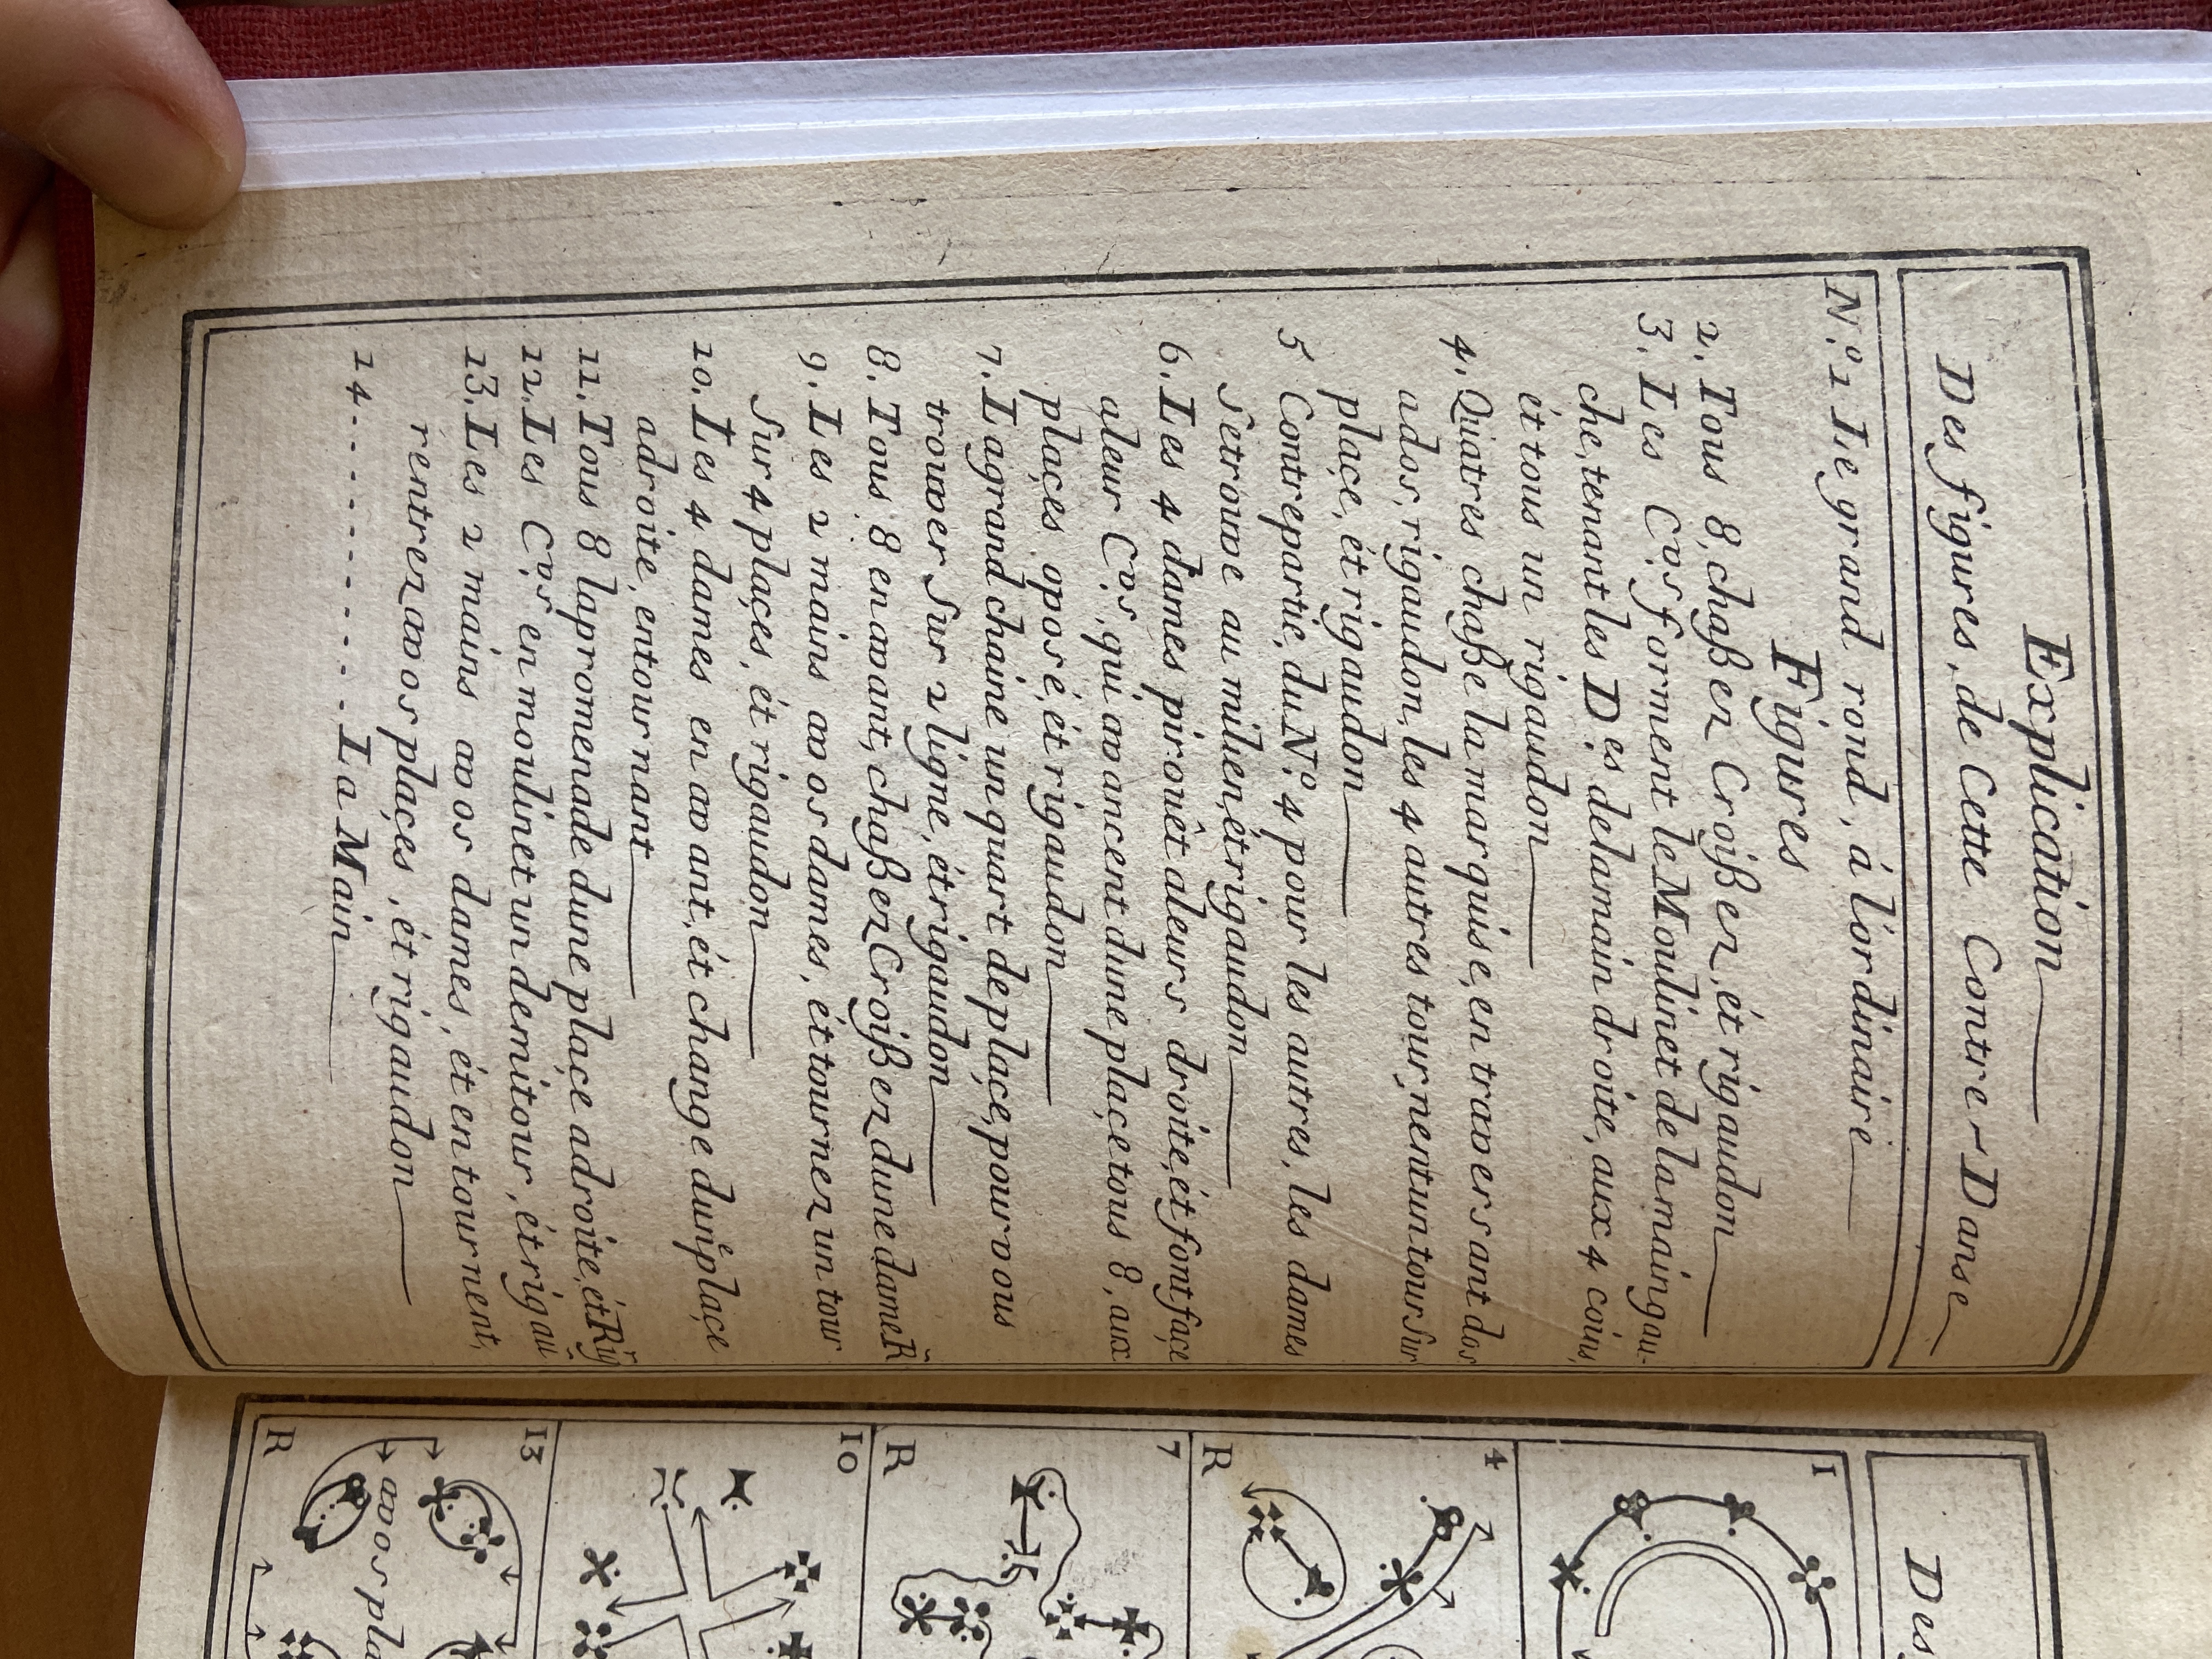 Explication
Des figures, de Cette Contre-Danse
N.º 1 Le grand rond, à l'ordinaire
Figures
2. Tous 8, chaßez Croißez, ét rigaudon
3. Les C.vs forment le Moulinet de la main gau-
che, tenant les D.es de la main droite, aux 4 coins,
ét tous un rigaudon
4. Quatres chaße la marquise, en travers ant dos
a dos, rigaudon, les 4 autres tour, nent un tour sur
plaçe, ét rigaudon
5 Contrepartie, du N.º 4 pour les autres, les dames
Setrouve au milieu, ét rigaudon
6. Les 4 dames pirouêt a leurs droite, ét font façe
a leur C.vs, qui avancent dune plaçe tous 8, aux
plaçes oposé, ét rigaudon
7. La grand chaine un quart de plaçe, pour vous
trouver sur 2 ligne, ét rigaudon
8. Tous 8 en avant, chaßez Croißez dune dame R
9. Les 2 mains a vos dames, ét tournez un tour
Sur 4 plaçes, ét rigaudon
10. Les 4 dames en avant, ét change dune plaçe
adroite, entournant
11. Tous 8 la promenade dune plaçe adroite, ét Rig
12. Les C.vs en moulinet un demi tour, ét rigau
13. Les 2 mains a vos dames, ét en tournent,
rentrez a vos plaçes, ét rigaudon
14 - - - - - - - - - - La Main
Des
1
4
R
7
R
10
13
a vos pla
R